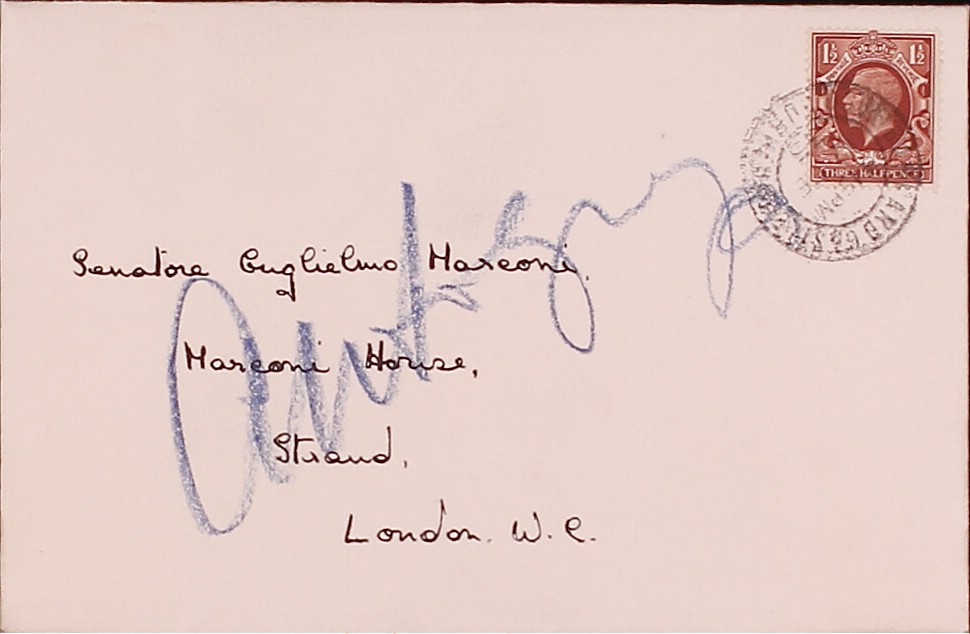 1½ 1½
(THREE HALFPENCE)
PM
Senatore Guglielmo Marconi,
Marconi House,
Strand,
London. W.C.